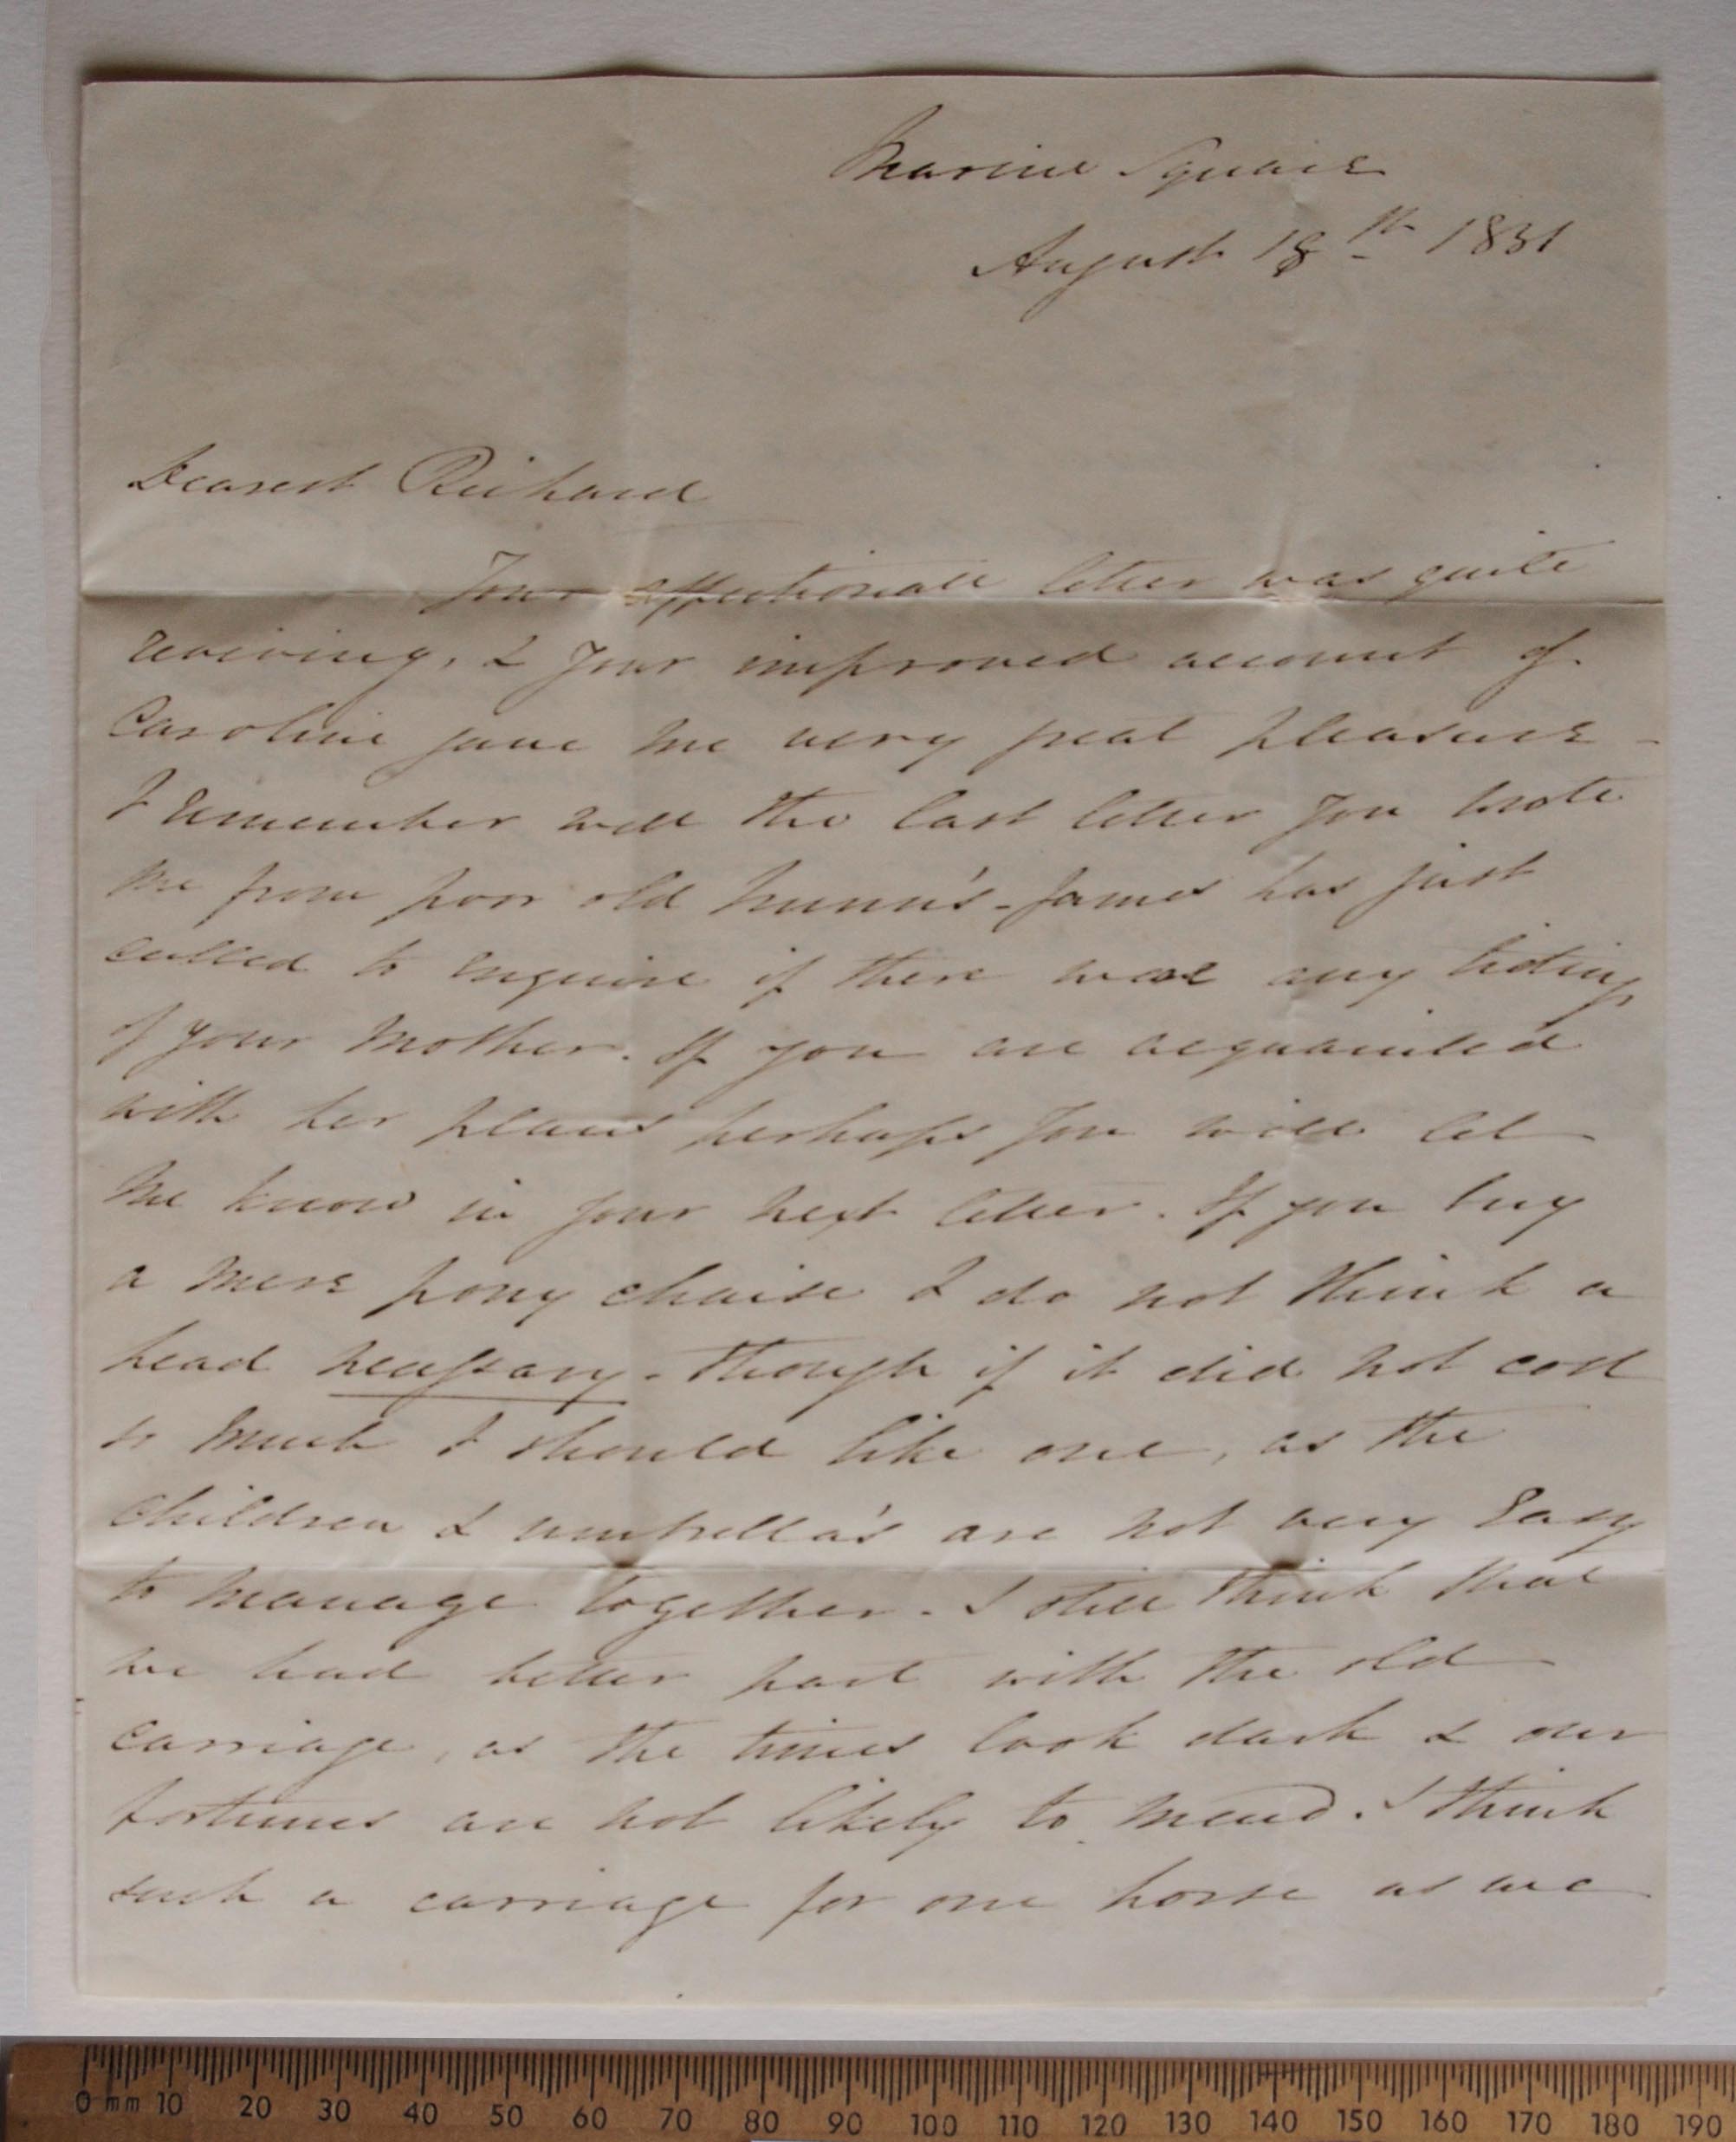 Marine Square
August 18th 1831
Dearest Richard
Your affectionate letter was quite
reviving, & your improved account of
Caroline gave me very great pleasure -
I remember well the last letter you wrote
me from poor old Nunn's - James has just
called to enquire if there was any tidings
of your Mother. If you are acquainted
with her plans perhaps you will let
me know in your next letter. If you buy
a mere pony chaise I do not think a
head necessary - though if it did not cost
so much I should like one, as the
children & umbrella's are not very easy
to manage together - I still think that
we had better part with the old
carriage, as the times look dark & our
fortunes are not likely to mend. I think
such a carriage for one horse as we
0 mm 10 20 30 40 50 60 70 80 90 100 110 120 130 140 150 160 170 180 190